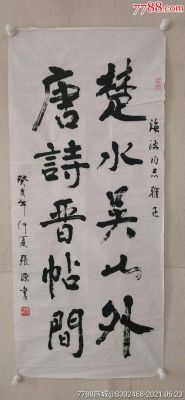 7788.com
海波同志雅正
楚水吴山外
唐詩晋帖間
癸亥年仲夏張源書
7788商城@S302468-2021.06.23